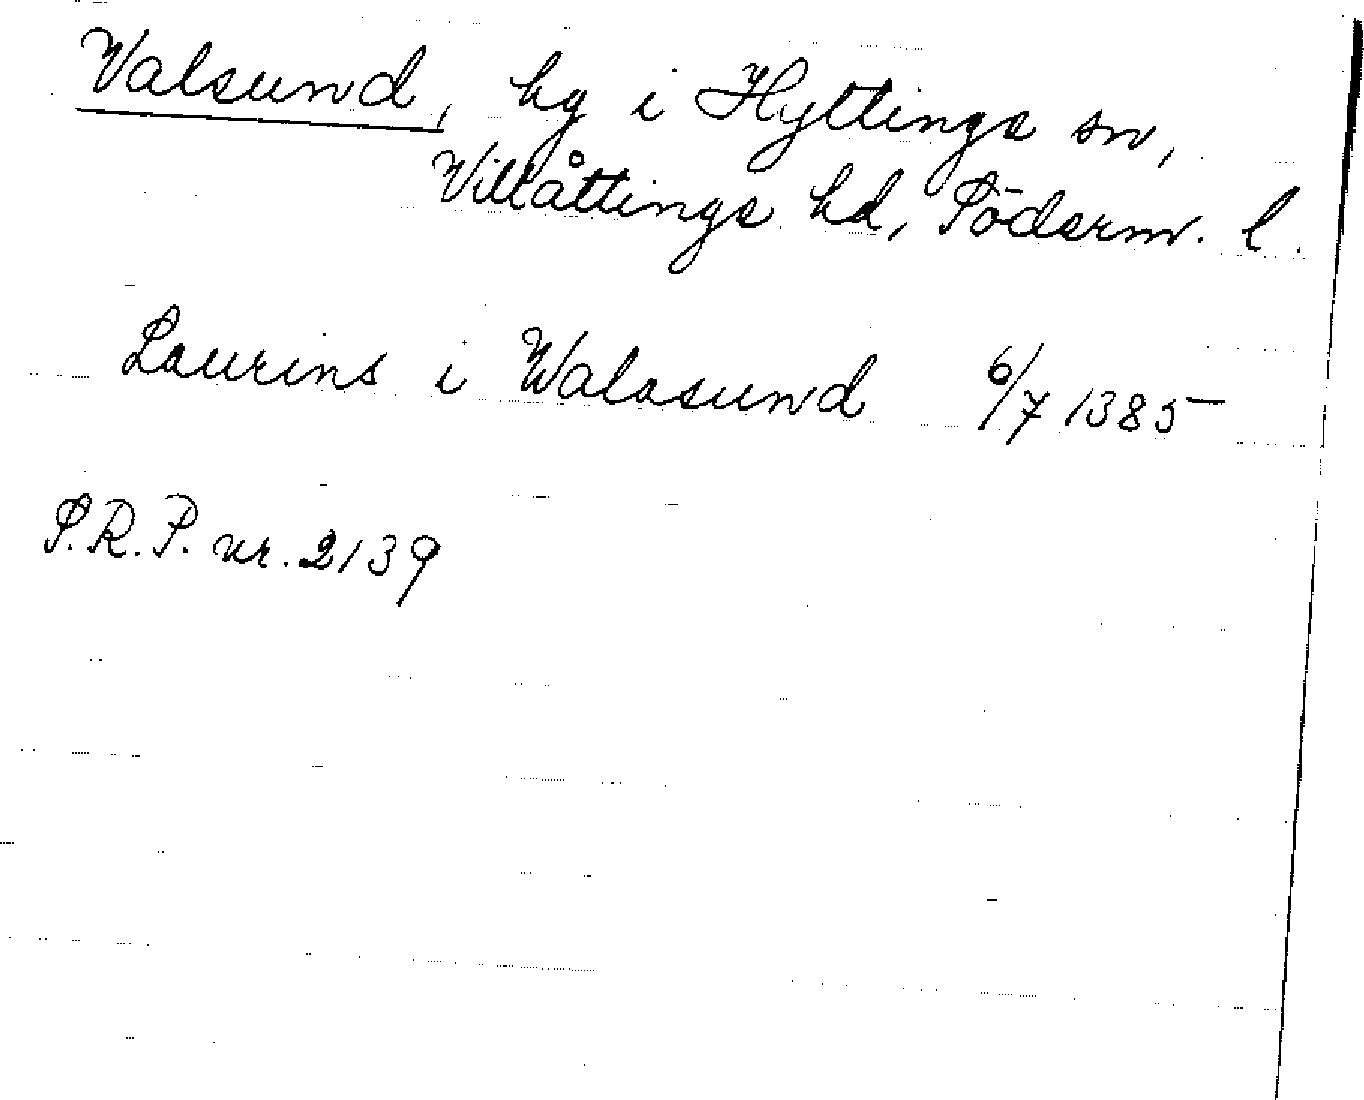 Valsund, hg i Hyltinge sn,
Villåttinge hd, Söderm. l.
Laurins i Walasund 6/7 1385
S.R.P. nr. 2139